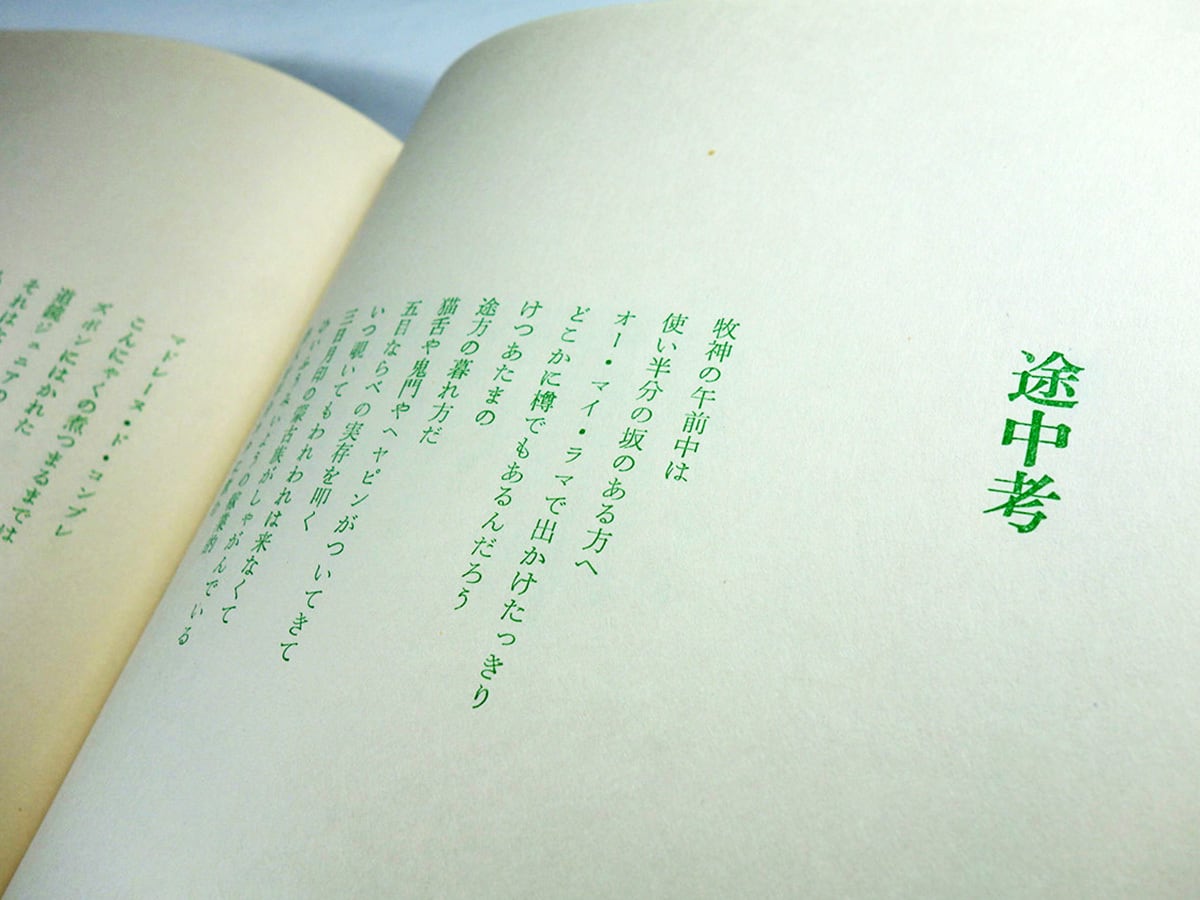 途中考
牧神の午前中は
使い半分の坂のある方へ
オー・マイ・ラマで出かけたっきり
どこかに樽でもあるんだろう
けつあたまの
途方の暮れ方だ
猫舌や鬼門やヘヤピンがついてきて
五目ならべの実存を叩く
いつ覗いてもわれわれは来なくて
三日月印の蒙古族がしゃがんでいる
マドレーヌ・ド・コンブレ
こんにゃくの煮つまるまでは
ズボンにはかれた
道鏡ジュニアの
それは